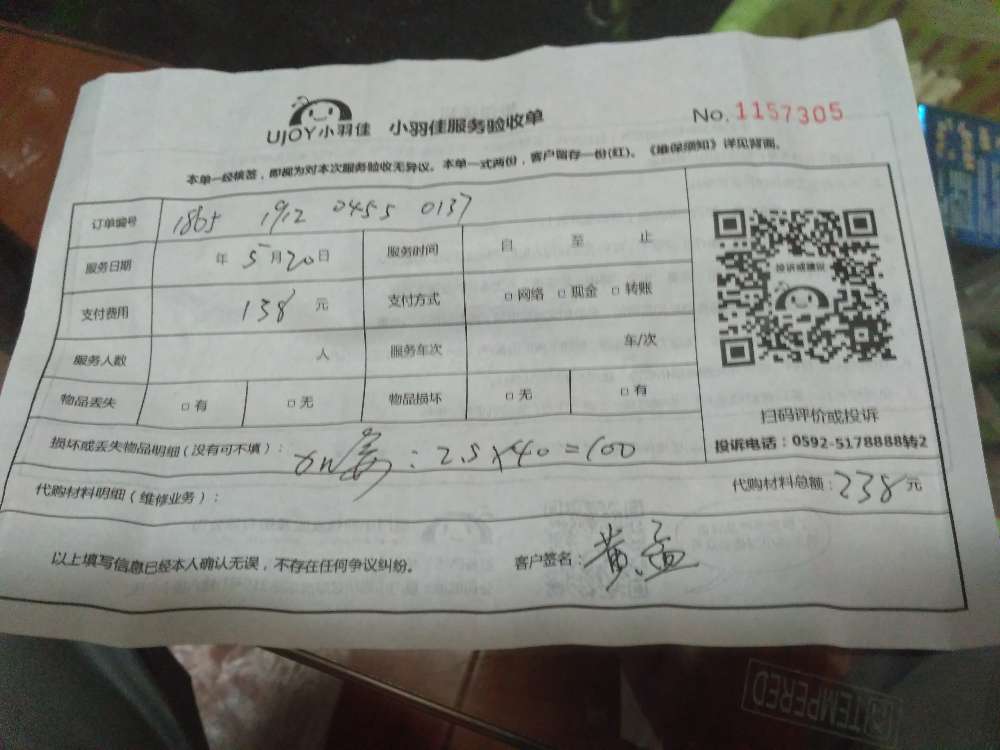 UJOY小羽佳 小羽佳服务验收单 No. 1157305
本单一经核签，即视为对本次服务验收无异议。本单一式两份，客户留存一份(红)。《维保须知》详见背面。
订单编号 1865 1912 0455 0137
服务日期 年 5月20日 服务时间 自 至 止
支付费用 138 元 支付方式 □ 网络 □ 现金 □ 转账
服务人数 人 服务车次 车/次
物品丢失 □ 有 □ 无 物品损坏 □ 无 □ 有
投诉或建议
扫码评价或投诉
投诉电话：0592-5178888转2
损坏或丢失物品明细(没有可不填)： ：2.5×40=100
代购材料明细（维修业务）： 代购材料总额：238元
以上填写信息已经本人确认无误，不存在任何争议纠纷。 客户签名：黄
TEMPERED